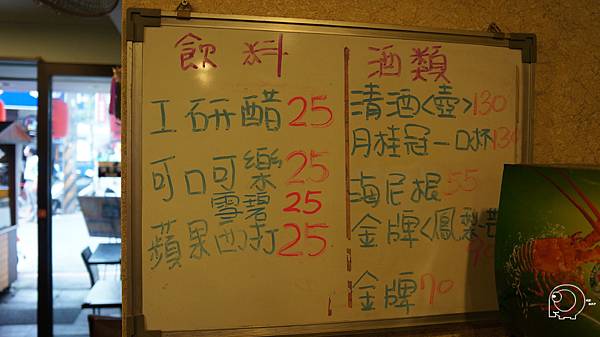 飲料
工研醋25
可口可樂25
雪碧25
蘋果西打25
酒類
清酒<壺>130
月桂冠一口杯130
海尼根55
金牌<鳳梨芒
70
金牌70